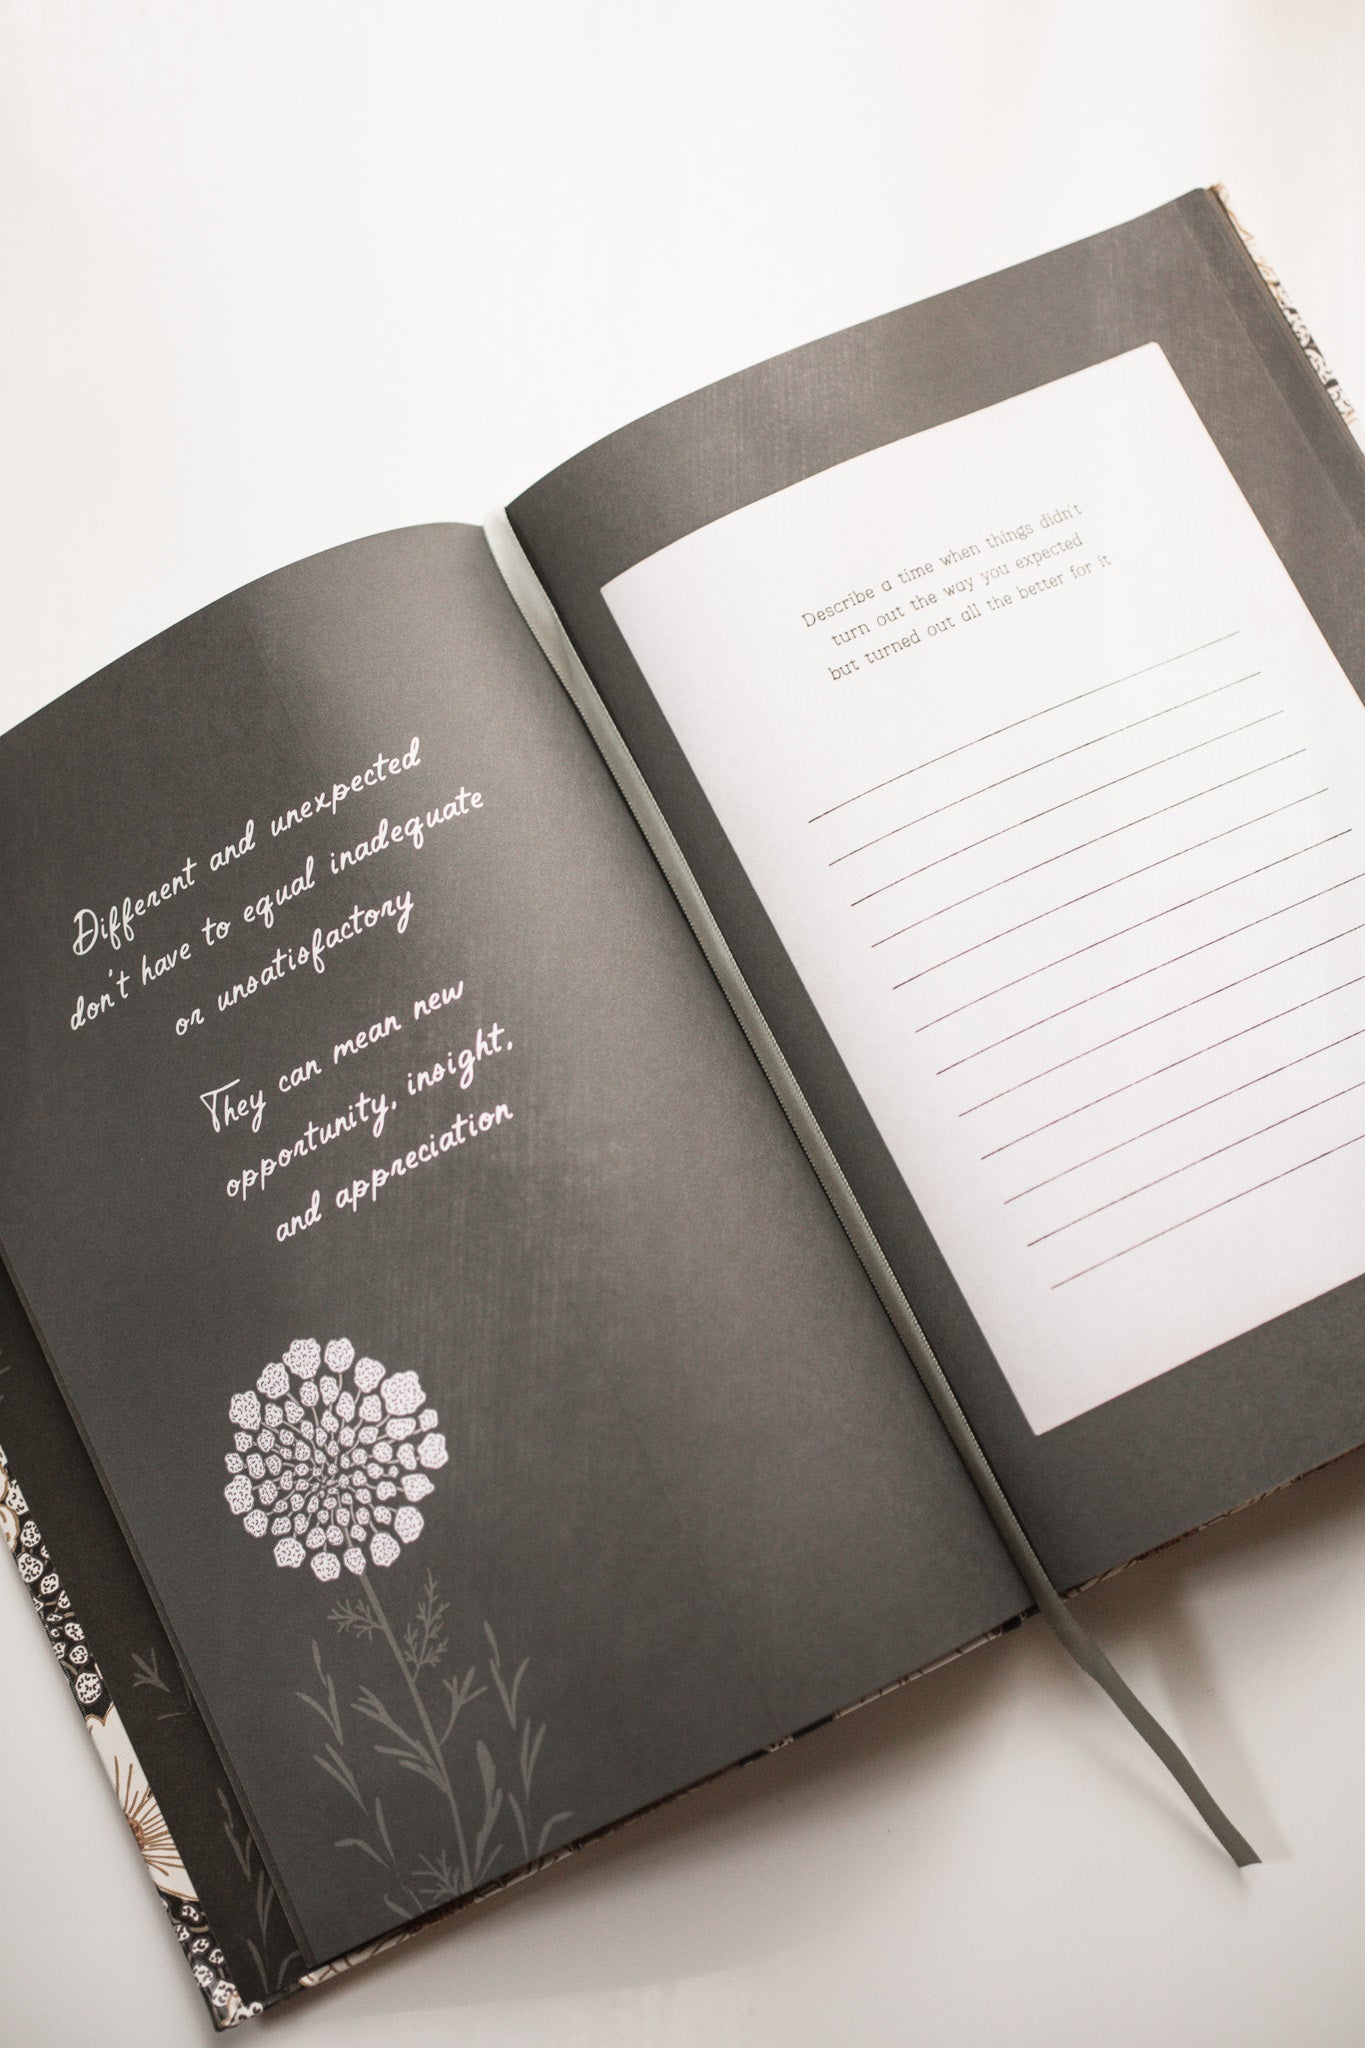 Different and unexpected
don't have to equal inadequate
or unsatisfactory
They can mean new
opportunity, insight,
and appreciation
Describe a time when things didn't
turn out the way you expected
but turned out all the better for it